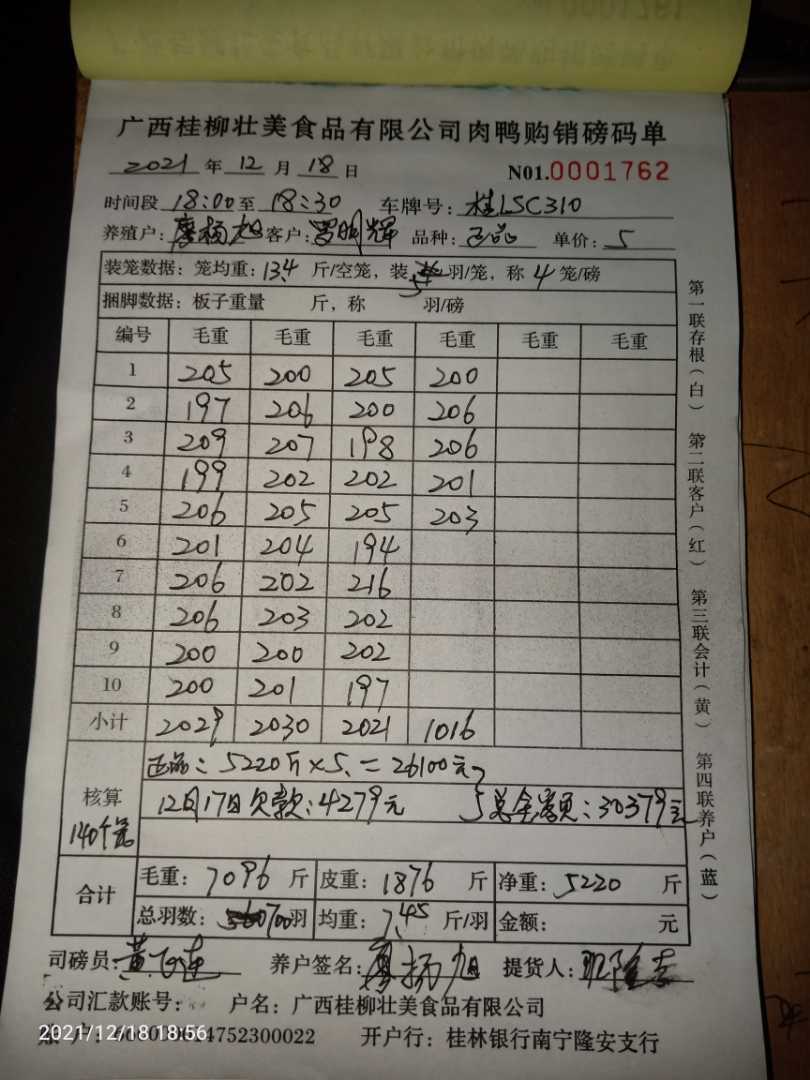 广西桂柳壮美食品有限公司肉鸭购销磅码单
2021 年 12 月 18 日 N01.0001762
时间段 18:00 至 18:30 车牌号: 桂LSC310
养殖户: 廖杨旭 客户: 罗明辉 品种: 正品 单价: 5
装笼数据: 笼均重: 13.4 斤/空笼, 装 5 羽/笼, 称 4 笼/磅
捆脚数据: 板子重量 斤, 称 羽/磅
编号 毛重 毛重 毛重 毛重 毛重 毛重
1 205 200 205 200
2 197 206 200 206
3 209 207 198 206
4 199 202 202 201
5 206 205 205 203
6 201 204 194
7 206 202 216
8 206 203 202
9 200 200 202
10 200 201 197
小计 2029 2030 2021 1016
核算 正品: 5220斤×5.=26100元
12月17日欠款:4279元 总金额:30379元
140个笼
合计 毛重: 7096 斤 皮重: 1876 斤 净重: 5220 斤
总羽数: 700 羽 均重: 7.45 斤/羽 金额: 元
司磅员: 黄 养户签名: 廖杨旭 提货人:
公司汇款账号: 户名: 广西桂柳壮美食品有限公司
4752300022 开户行: 桂林银行南宁隆安支行
2021/12/18 18:56
第一联存根(白) 第二联客户(红) 第三联会计(黄) 第四联养户(蓝)